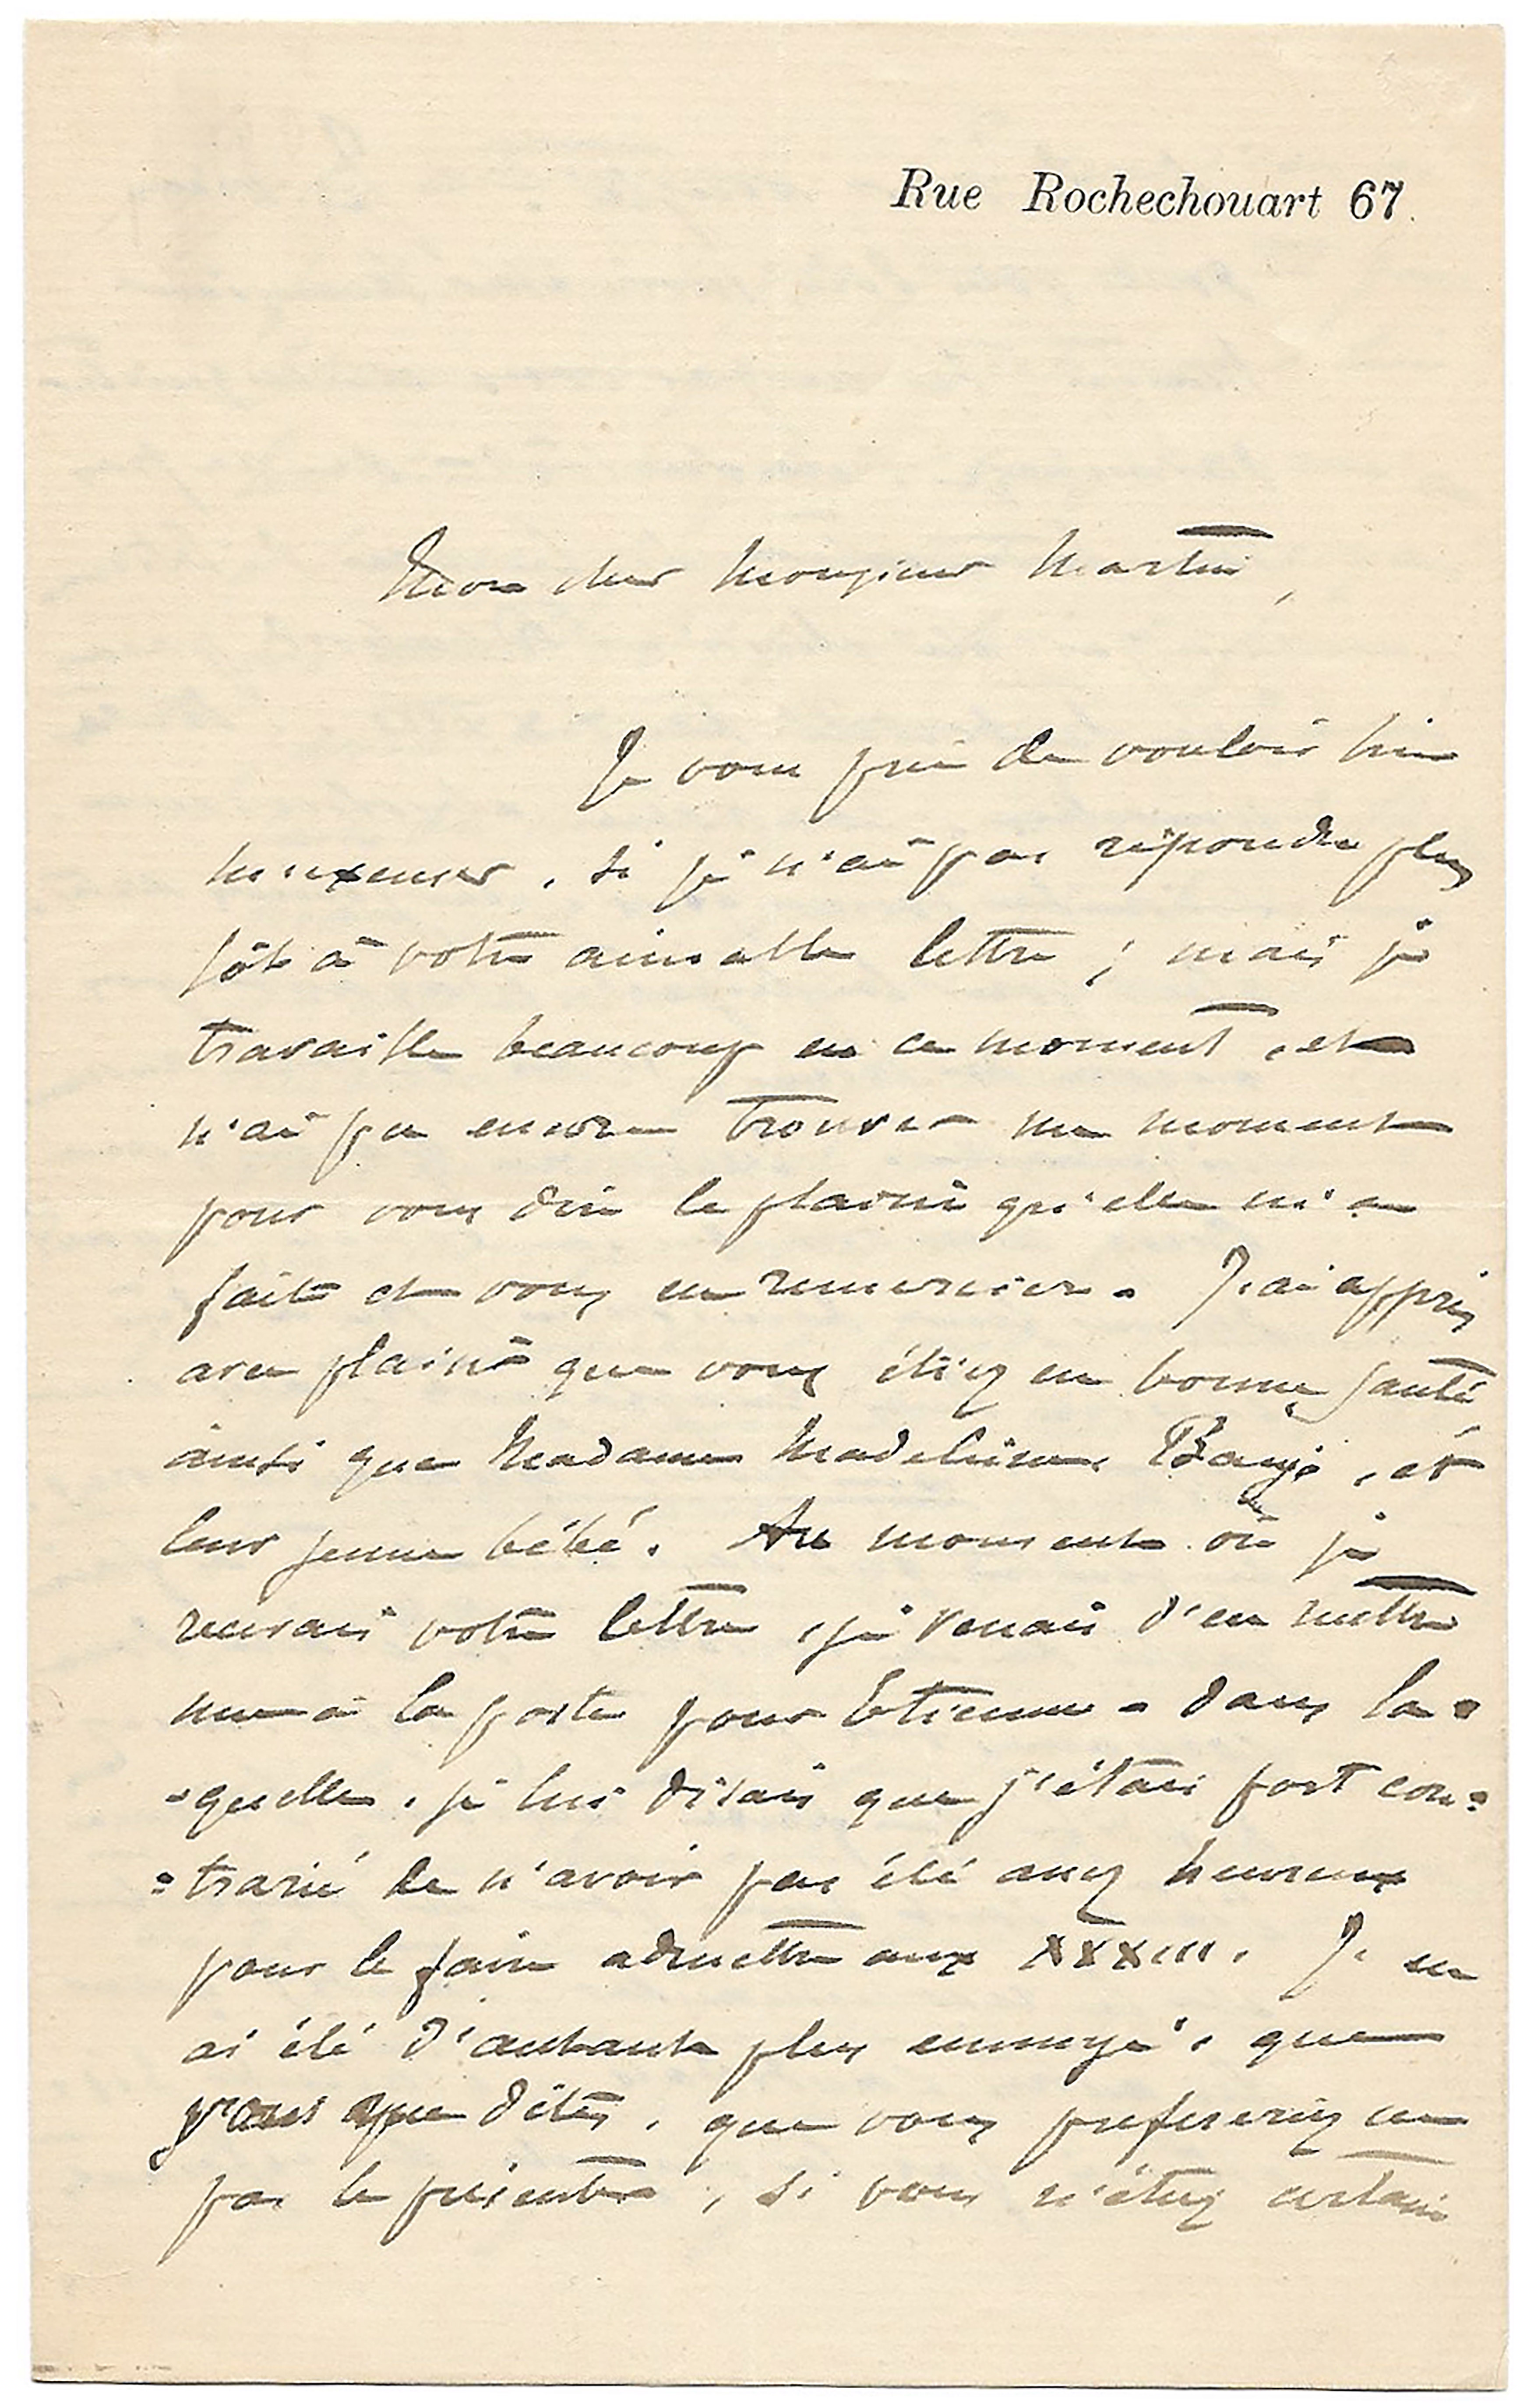 Rue Rochechouart 67.
Mon cher Monsieur Martin,
Je vous prie de vouloir bien
m'excuser, si je n'ai pas répondu plus
tôt à votre aimable lettre ; mais je
travaille beaucoup en ce moment, et
n'ai pu encore trouver un moment
pour vous dire le plaisir qu'elle m'a
fait et vous en remercier. J'ai appris
avec plaisir que vous étiez en bonne santé
ainsi que Madame Madeleine, et
leur jeune bébé. Au moment où je
recevais votre lettre, je venais d'en mettre
une à la poste pour Etienne - dans la=
=quelle, je lui disais que j'étais fort con=
=trarié de n'avoir pas été assez heureux
pour le faire admettre aux XXXIII. J'en
ai été d'autant plus ennuyé, que
vous dites, que vous préfereriez ne
pas le présenter, si vous n'étiez certain